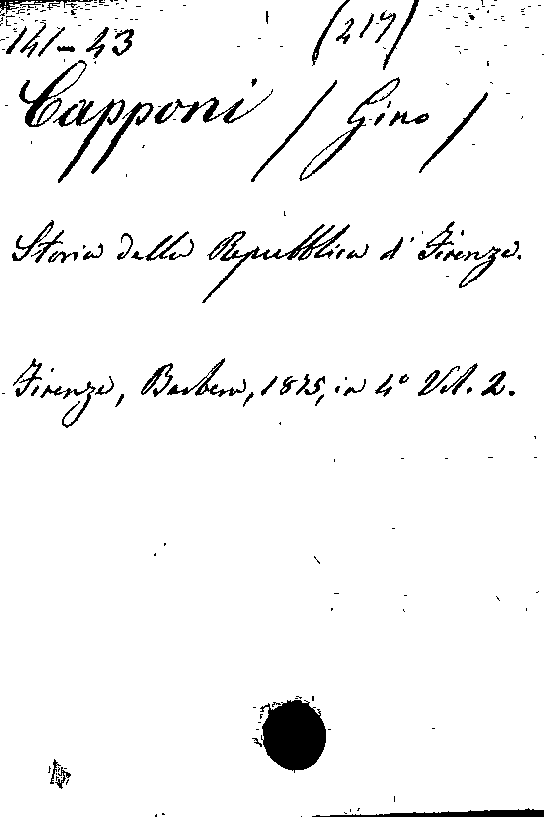 141-43 (217)
Capponi (Gino)
Storia della Repubblica di Firenze.
Firenze, Barbera, 1875, in 4° Vol. 2.